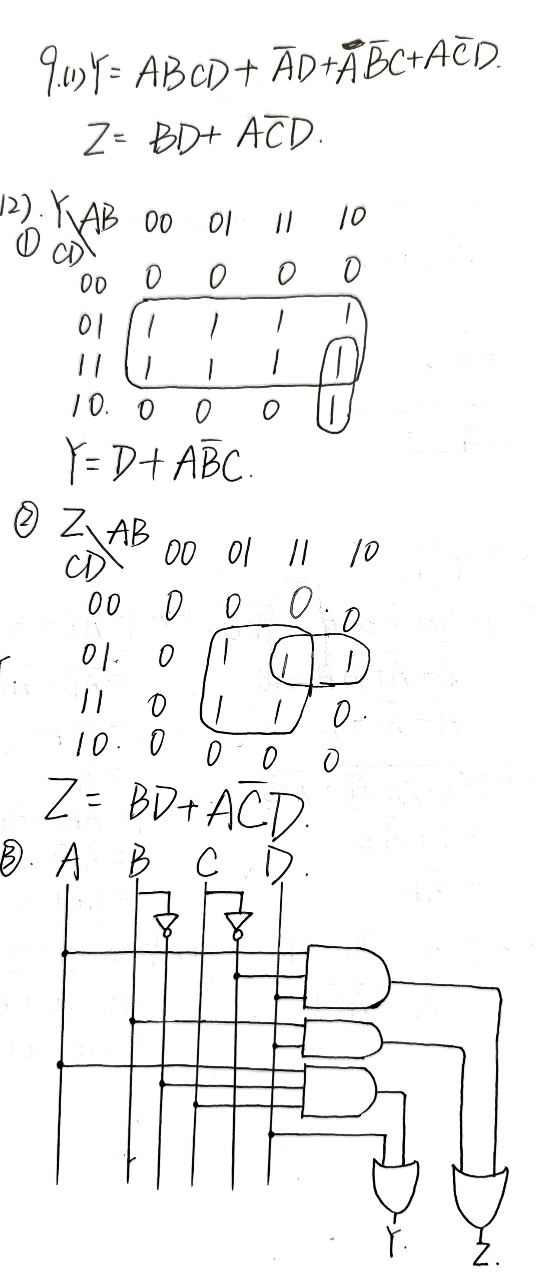 9.(1) Y = ABCD + A̅D + AB̅C + AC̅D.
Z = BD + AC̅D.
(2). Y\AB 00 01 11 10
① CD
00 0 0 0 0
01 1 1 1 1
11 1 1 1 1
10. 0 0 0 1
Y = D + AB̅C.
② Z\AB 00 01 11 10
CD
00 0 0 0 0
01. 0 1 1 1
11 0 1 1 0.
10. 0 0 0 0
Z = BD + AC̅D.
③. A B C D.
Y. Z.